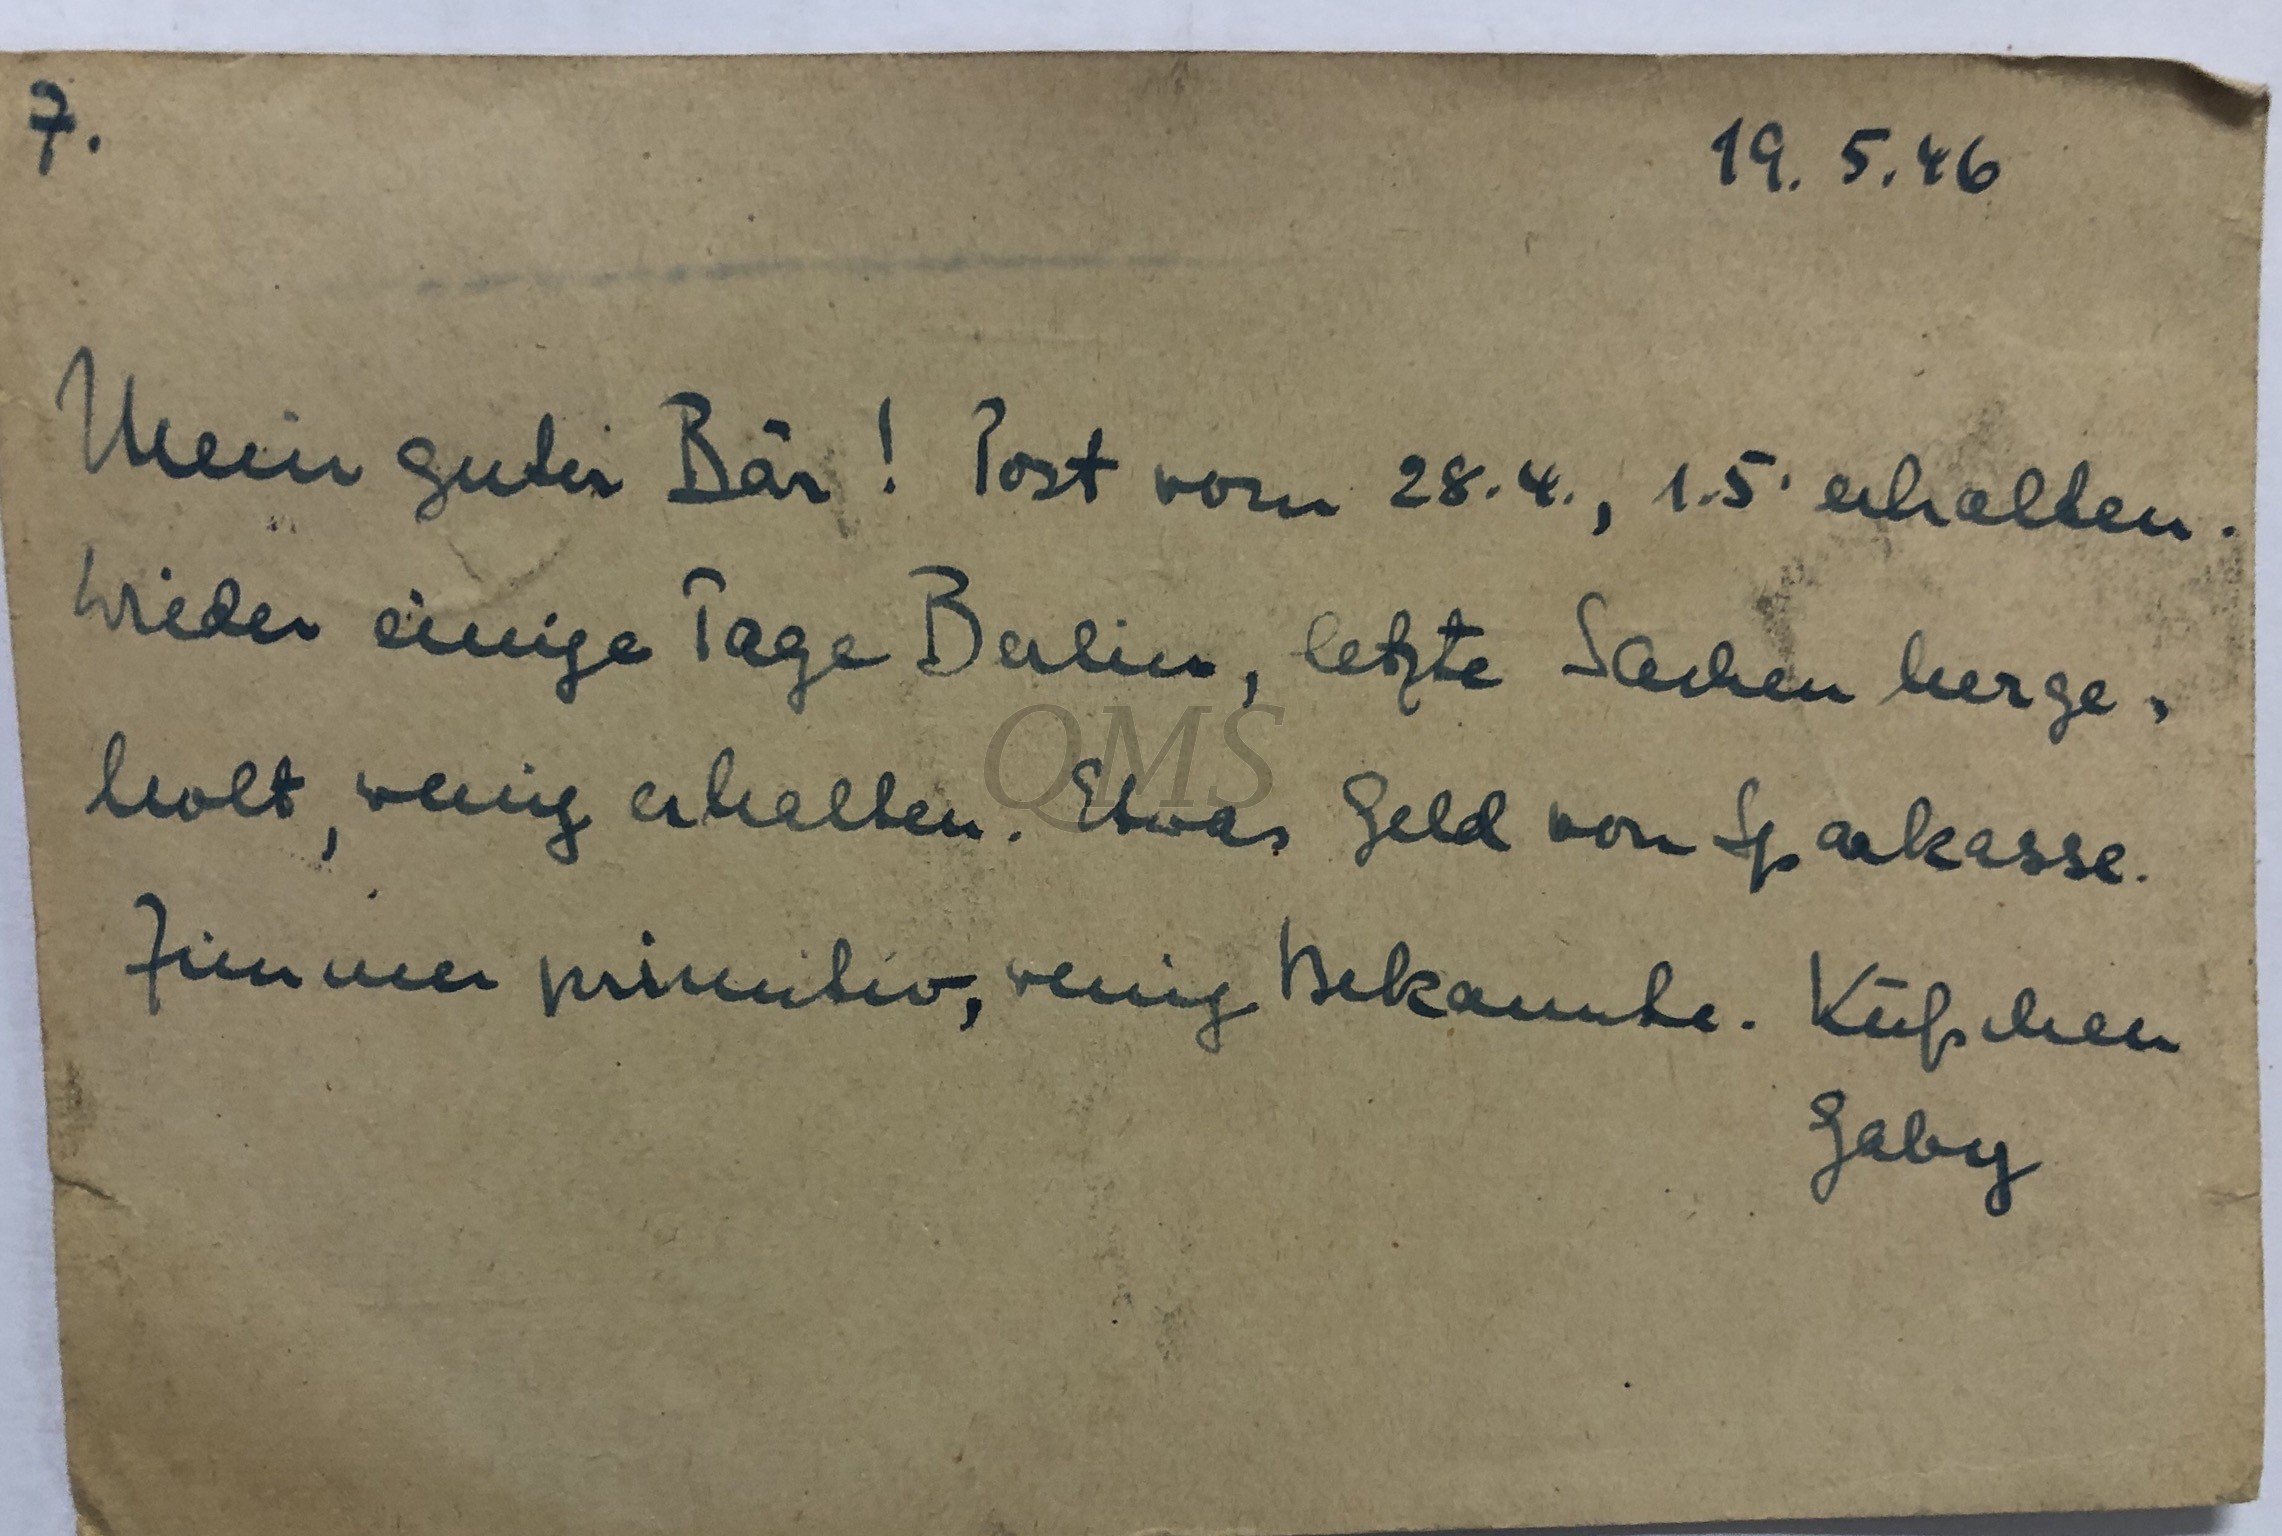 7.
19.5.46
Mein guter Bär! Post vom 28.4., 1.5. erhalten.
Wieder einige Tage Berlin, letzte Sachen herge-
holt, wenig erhalten. Etwas Geld von Sparkasse.
Zimmer primitiv, wenig Bekannte. Küßchen
Gaby
QMS